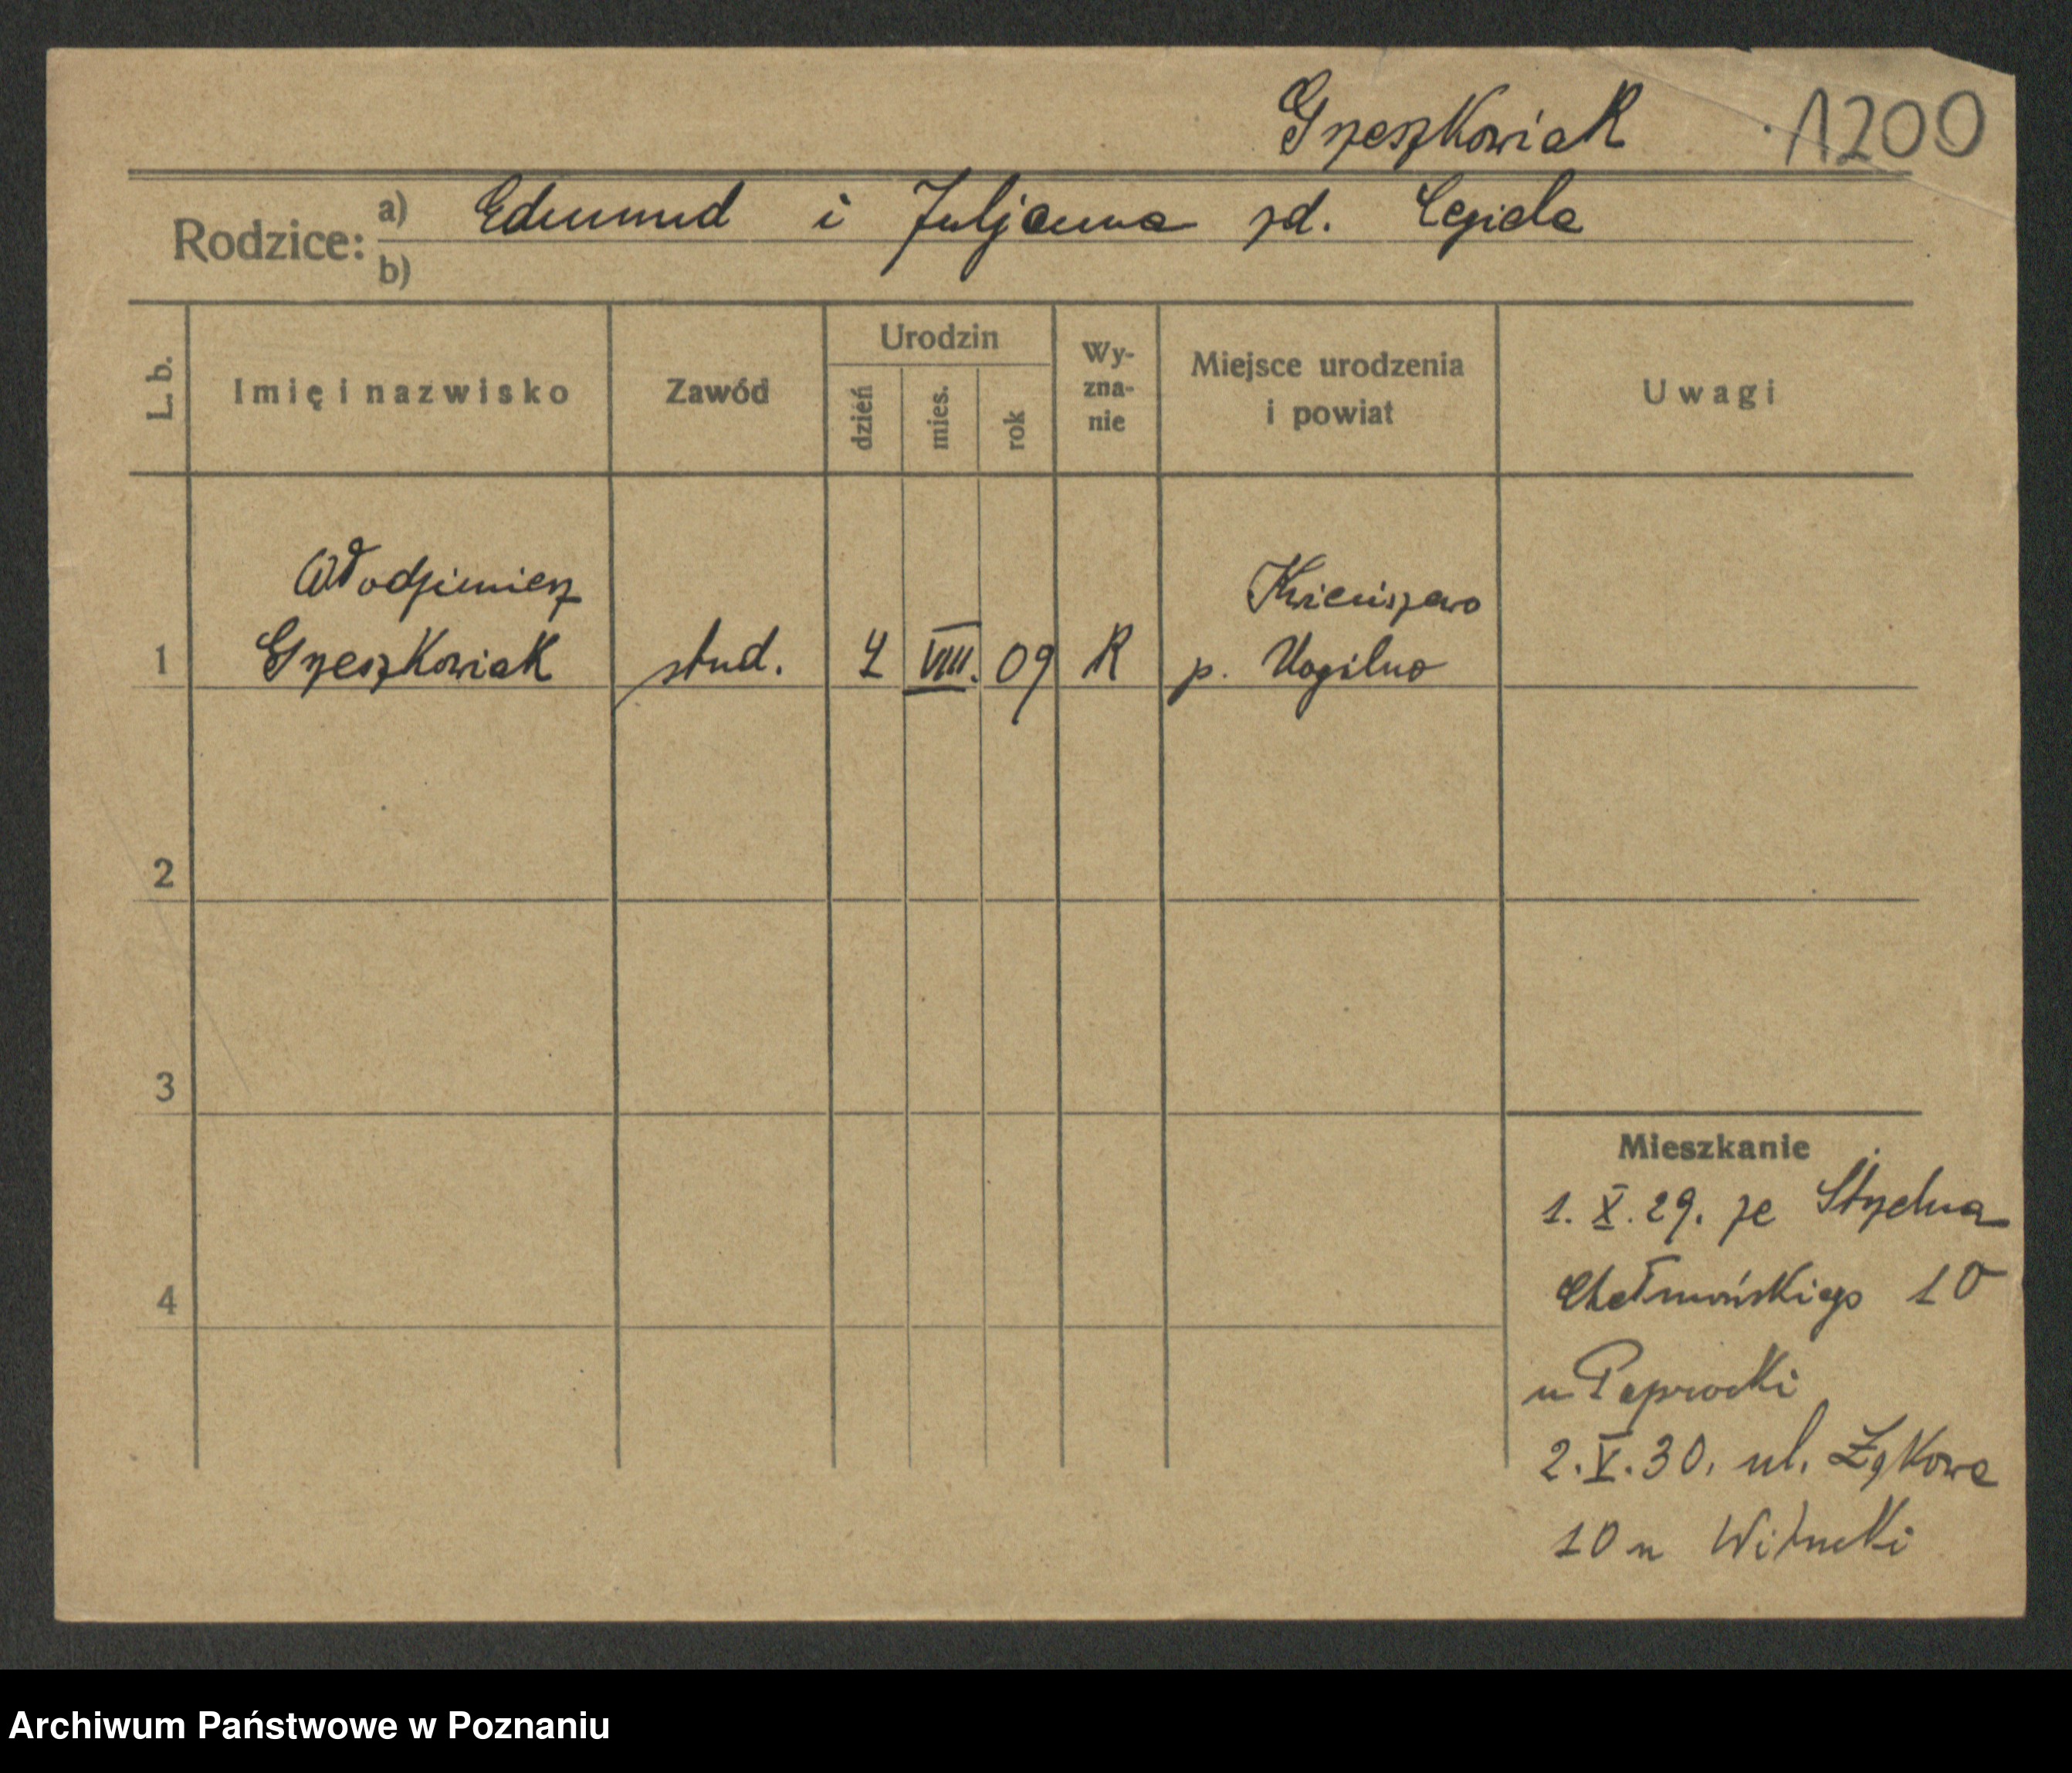 Grzeszkowiak 1200
Rodzice: a) Edmund i Juljanna zd. Cegiela
b)
L. b. Imię i nazwisko Zawód Urodzin dzień mies. rok Wyznanie Miejsce urodzenia i powiat Uwagi
Włodzimierz Kwieciszewo
1 Grzeszkowiak stud. VIII. 09 R p. Mogilno
2
3
Mieszkanie
1. X. 29. ze Strzelna
4 Chełmońskiego 10
u Paprocki
2. V. 30. ul. Łąkowa
10 u Witucki
Archiwum Państwowe w Poznaniu